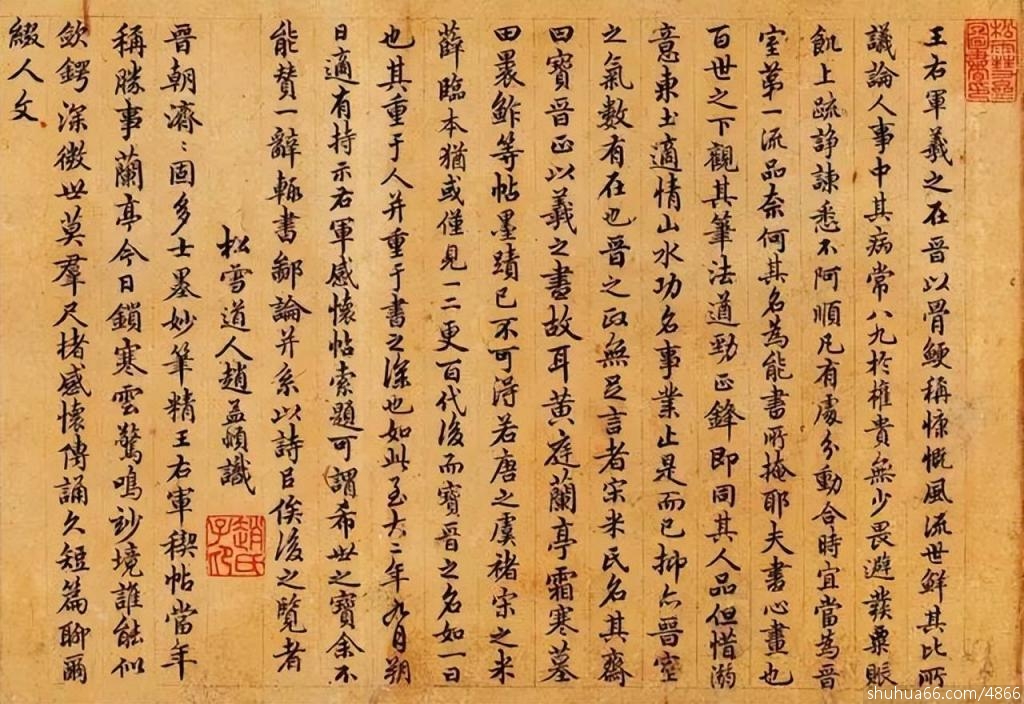 松雪齋圖書印
王右軍羲之在晉以骨鯁稱慷慨風流世鮮其比所
議論人事中其病常八九於權貴無少畏避發粟賑
飢上疏諍諫悉不阿順凡有處分動合時宜當為晉
室第一流品奈何其名為能書所掩耶夫書心畫也
百世之下觀其筆法遒勁正鋒即同其人品但惜溺
意東土適情山水功名事業止是而已抑亦晉室
之氣數有在也晉之政無足言者宋米氏名其齋
曰寶晉正以羲之書故耳黃庭蘭亭霜寒墓
田裹鮓等帖墨蹟已不可得若唐之虞褚宋之米
薛臨本猶或僅見一二更百代後而寶晉之名如一日
也其重于人并重于書之深也如此至大二年九月朔
日適有持示右軍感懷帖索題可謂希世之寶余不
能贊一辭輒書鄙論并系以詩㠯俟後之覽者
松雪道人趙孟頫識
趙氏子昂
晉朝濟〻固多士墨妙筆精王右軍禊帖當年
稱勝事蘭亭今日鎖寒雲驚鳴玅境誰能似
斂鍔深微世莫羣尺楮感懷傳誦久短篇聊爾
綴人文
shuhua66.com/4866